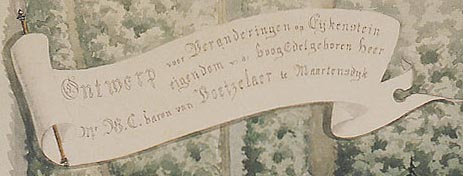 Ontwerp voor Veranderingen op Eykenstein
eigendom v. d. Hoog Edelgeboren Heer
Mr W. C. baron van Boetzelaer te Maartensdyk